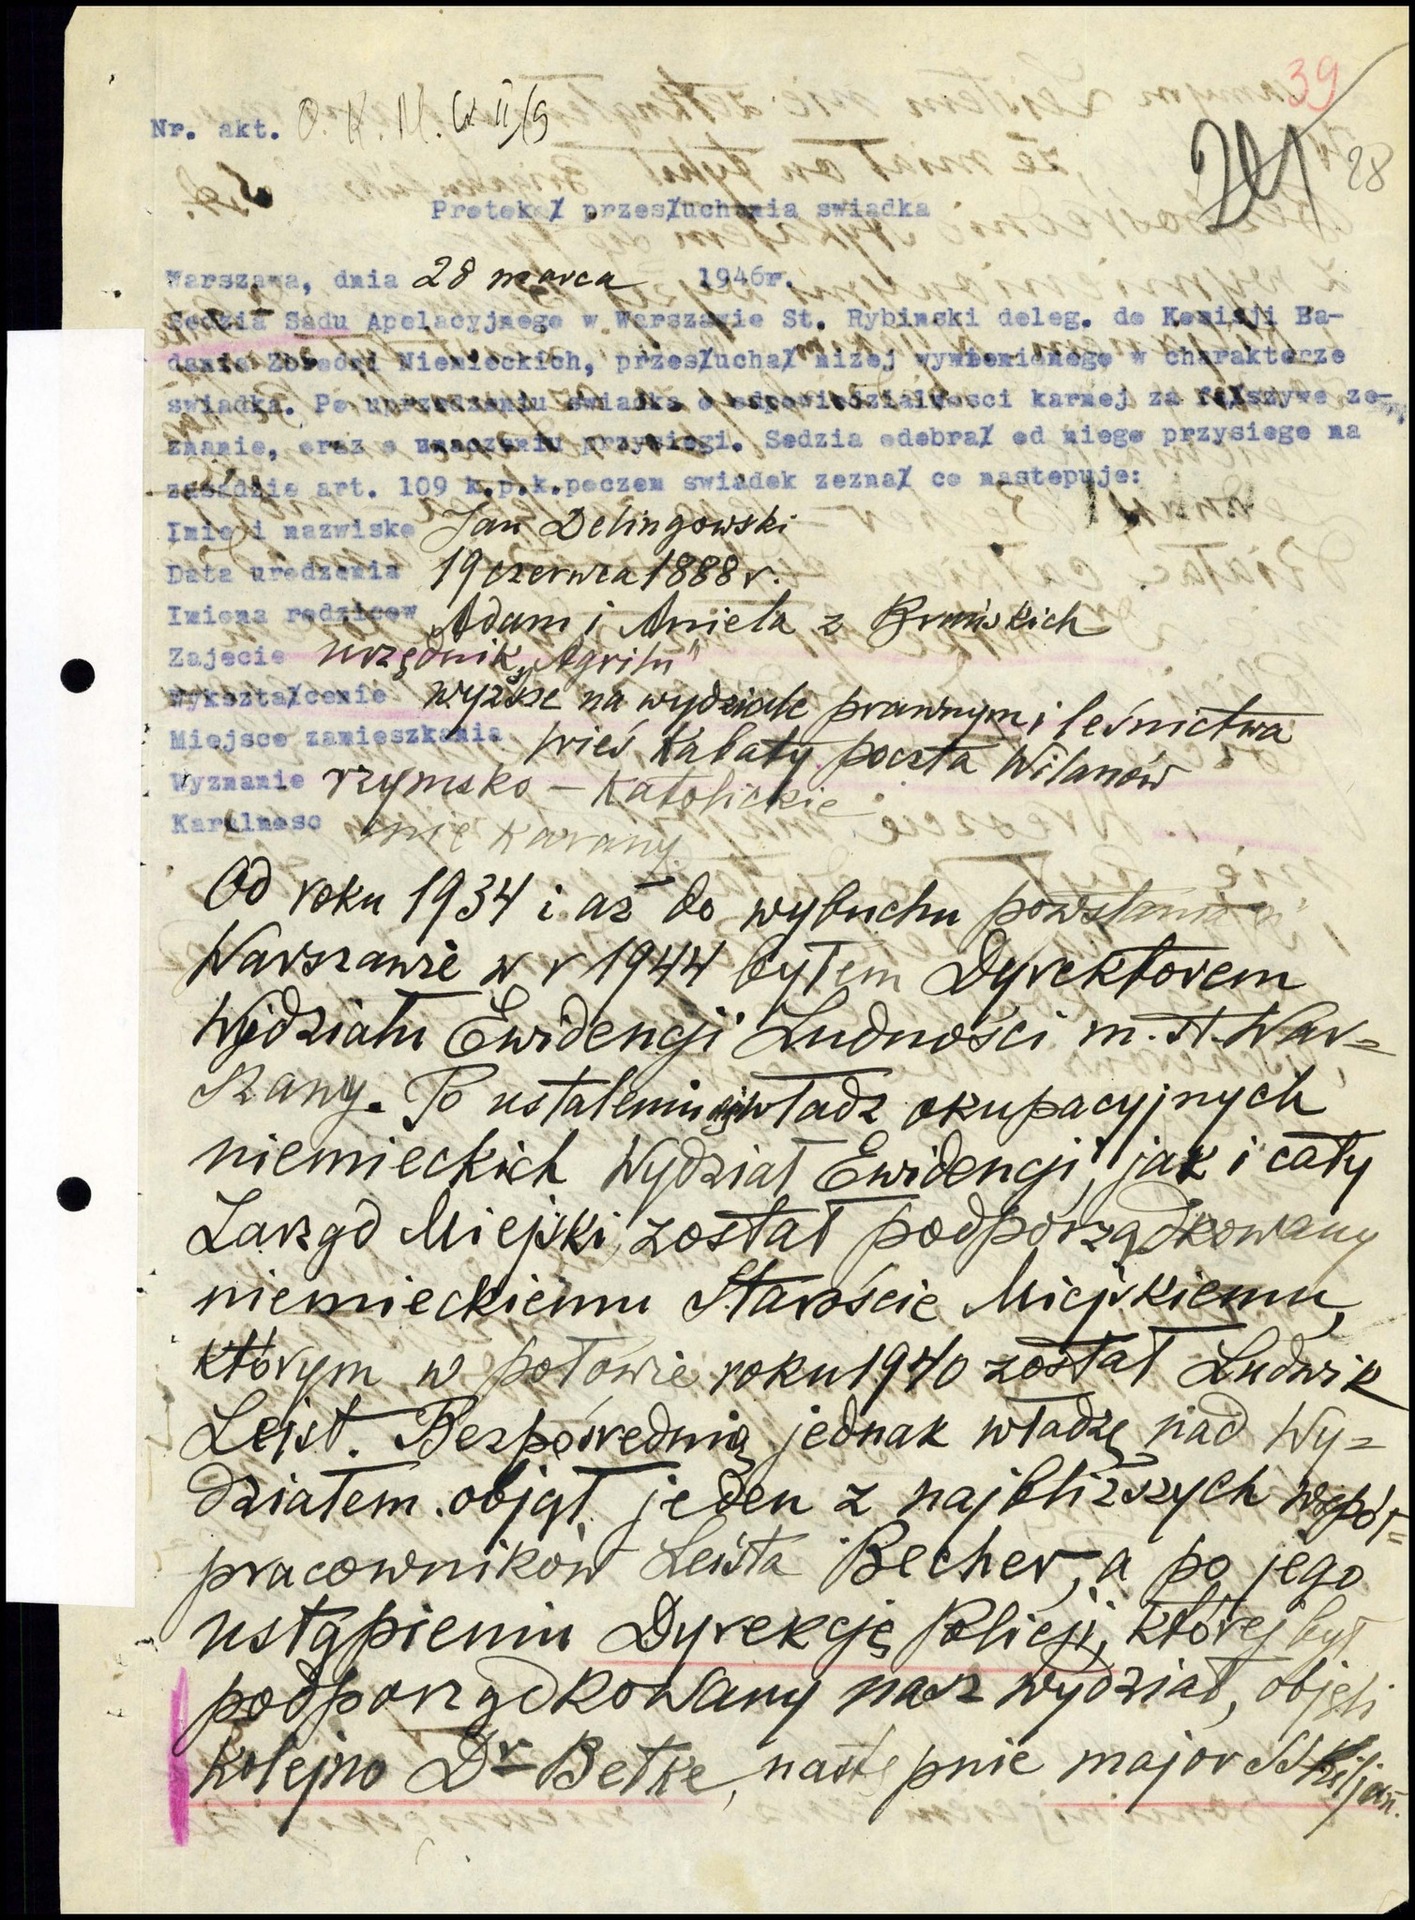 39
Nr. akt. O. K. M. W II/5
28
Protokół przesłuchania swiadka
Warszawa, dnia 28 marca 1946r.
Sedzia Sadu Apelacyjnego w Warszawie St. Rybinski deleg. do Komisji Ba-
dania Zbrodni Niemieckich, przesłuchał nizej wymienionego w charakterze
swiadka. Po uprzedzeniu swiadka o odpowiedzialnosci karnej za fałszywe ze-
znanie, oraz o znaczeniu przysiegi. Sedzia odebrał od niego przysiege na
zasadzie art. 109 k.p.k.poczem swiadek zeznał co nastepuje:
Imie i nazwisko Jan Delingowski
Data urodzenia 19 czerwca 1888 r.
Imiona rodzicow Adam i Aniela z Brońskich
Zajecie urzędnik „Agrilu"
Wykształcenie wyższe na wydziale prawnym i leśnictwa
Miejsce zamieszkania wieś Kabaty poczta Wilanów
Wyznanie rzymsko – Katolickie
Karalnosc nie karany.
Od roku 1934 i aż do wybuchu powstania w
Warszawie w r 1944 byłem Dyrektorem
Wydziału Ewidencji Ludności m. st. War=
szawy. Po ustaleniu się władz okupacyjnych
niemieckich Wydział Ewidencji, jak i cały
Zarząd Miejski, został podporządkowany
niemieckiemu Staroście Miejskiemu,
którym w połowie roku 1940 został Ludwik
Leist. Bezpośrednią jednak władzę nad Wy=
działem objął jeden z najbliższych współ=
pracowników Leista Becher, a po jego
ustąpieniu Dyrekcję Policji, której był
podporządkowany nasz wydział, objęli
kolejno Dr Betke, następnie major SS